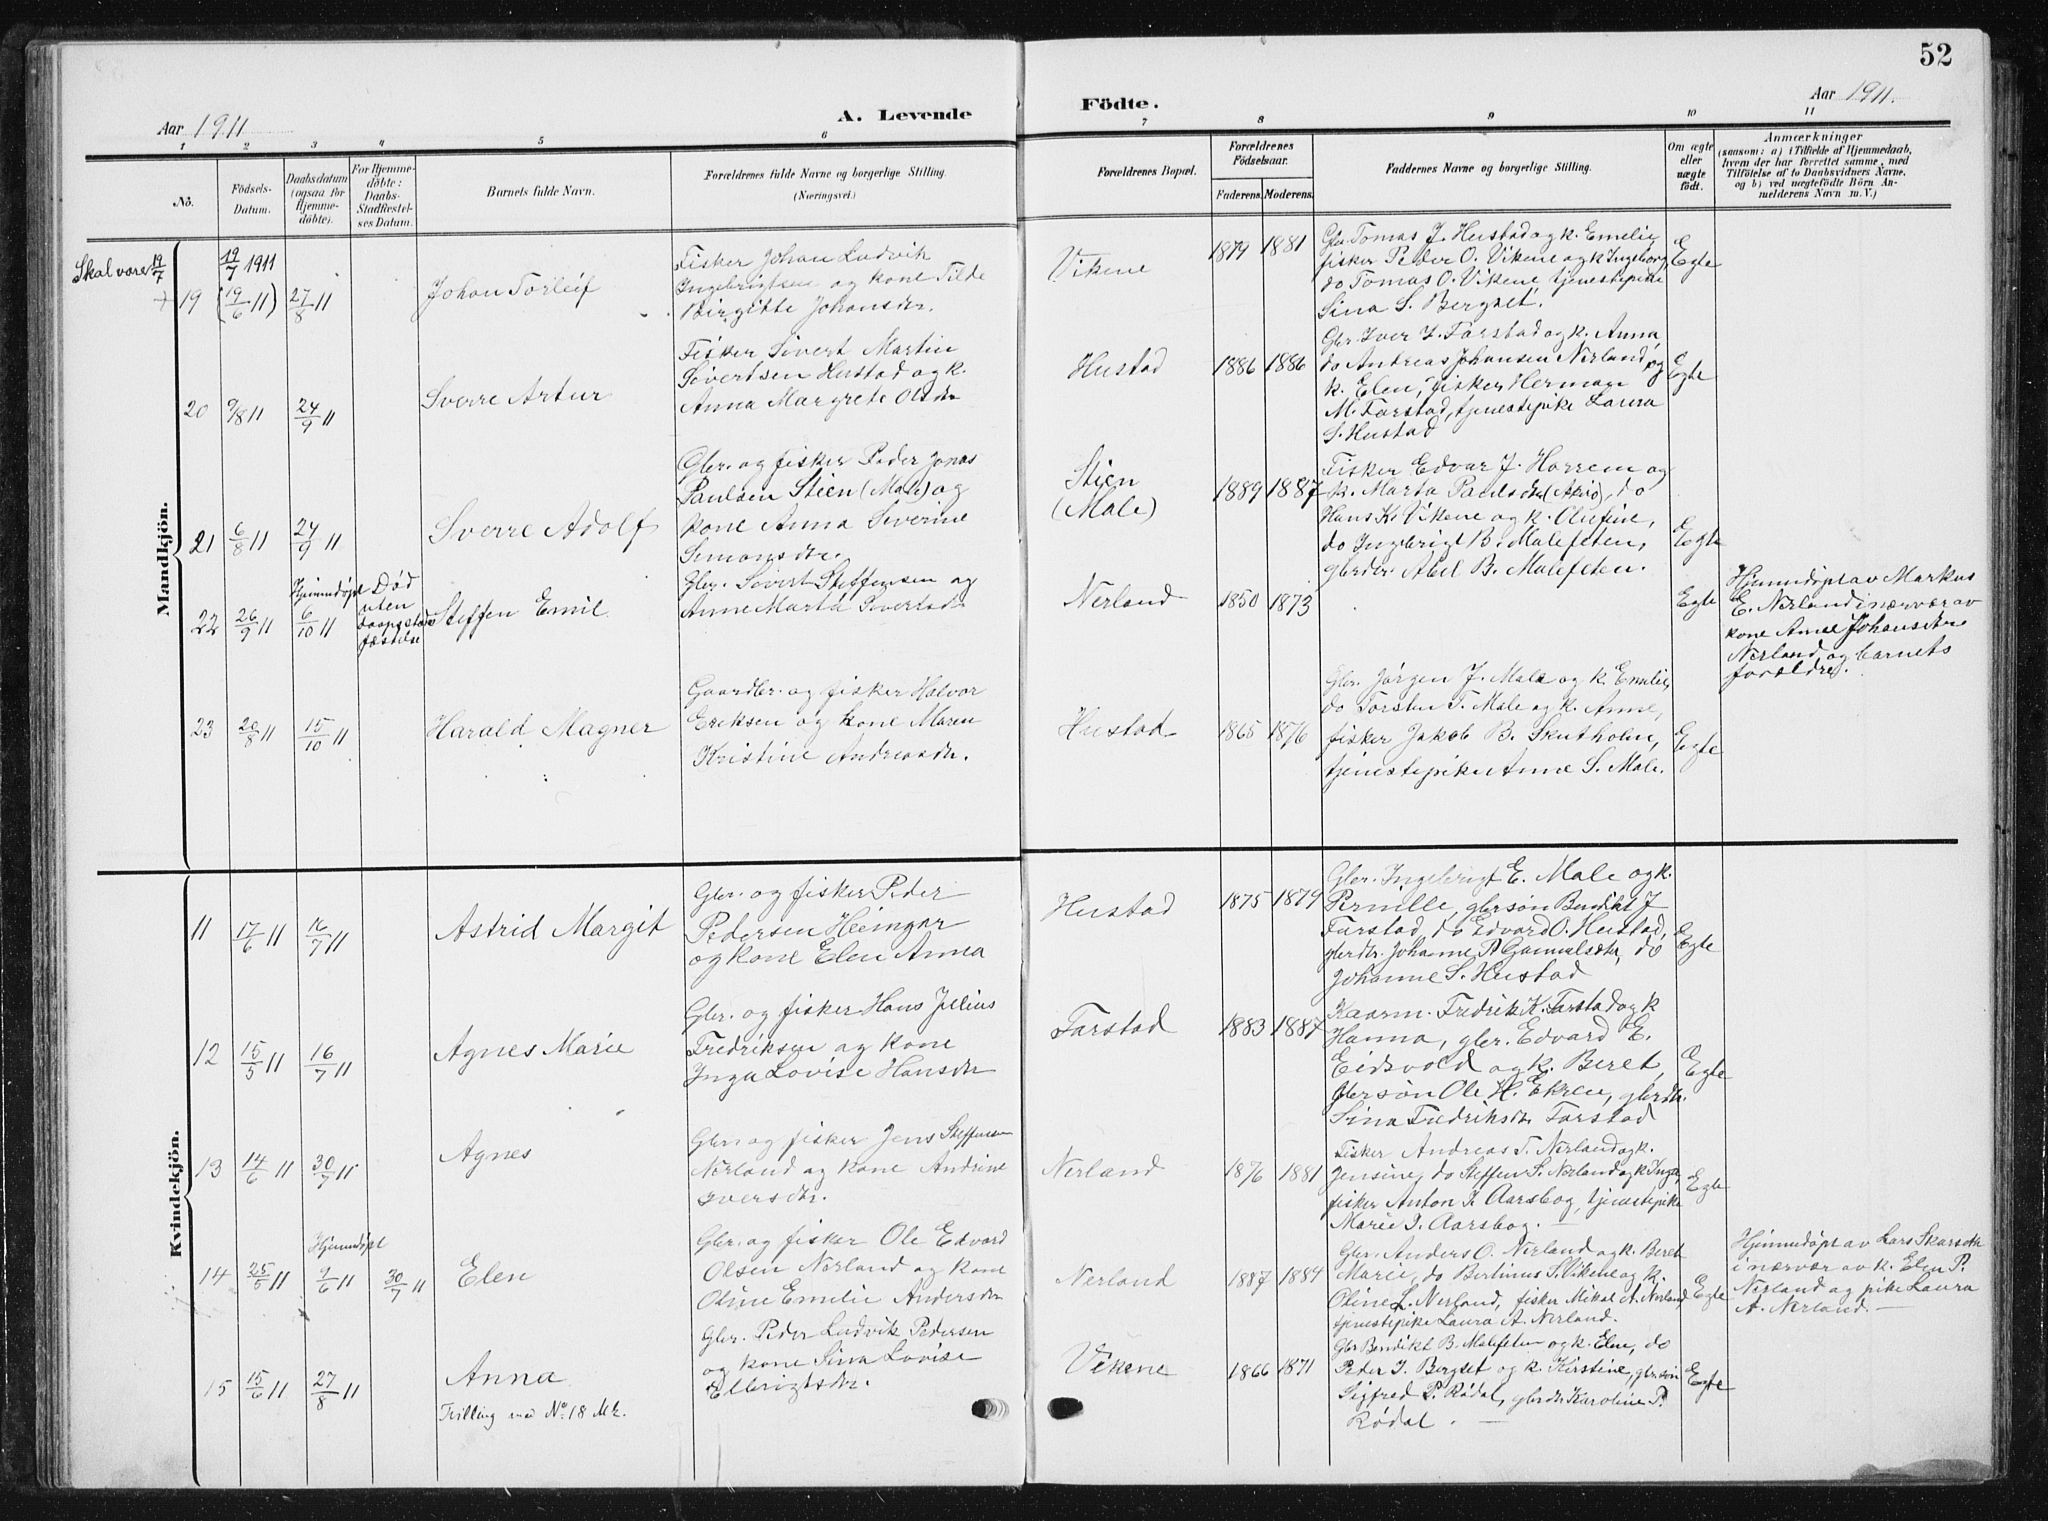 52
Aar 1911
A. Levende
Födte.
Aar 1911.
1 2 3 4 5 6 7 8 9 10 11
No.
Födsels-
Datum.
Daabsdatum
(ogsaa for
Hjemme-
döbte).
For Hjemme-
döbte:
Daabs-
Stadfæstel-
ses Datum.
Barnets fulde Navn.
Forældrenes fulde Navne og borgerlige Stilling.
(Næringsvei.)
Forældrenes Bopæl.
Forældrenes
Födselsaar.
Faderens. Moderens.
Faddernes Navne og borgerlige Stilling.
Om ægte
eller
nægte
födt.
Anmærkninger
(saasom: a) i Tilfælde af Hjemmedaab,
hvem der har forrettet samme, med
Tilföielse af to Daabsvidners Navne,
og b) ved nægtefödte Börn An-
melderens Navn m. V.)
Mandkjön.
Skal være 19/7
19/7 1911
19 (19/6 11) 27/8 11
Johan Torleif
Fisker Johan Ludvik
Ingebrigtsen og kone Tilde
Birgitte Johansdtr.
Vikene
1879 1881
Gbr. Tomas J. Hustad og k. Emelie,
fisker Peder O. Vikene og k Ingeborg,
do Tomas O. Vikene, tjenestepike
Sina S. Bergset.
Egte
20 9/8 11 24/9 11
Sverre Artur
Fisker Sivert Martin
Sivertsen Hustad og k.
Anna Margrete Olsdtr
Hustad
1886 1886
Gbr. Iver J. Farstad og k. Anna
do Andreas Johansen Nerland og
k. Elen, fisker Herman
M. Farstad, tjenestepike Laura
S. Hustad
Egte
21 6/8 11 24/9 11
Sverre Adolf
Gbr. og fisker Peder Jonas
Paulsen Stien (Male) og
kone Anna Severine
Simonsdtr.
Stien
(Male)
1889 1887
Fisker Edvar J. Horrem og
k. Marta Paulsdtr, do
Hans K. Vikene og k. Olufine,
do Ingebrigt B. Malefeten,
gbrdtr. Abel B. Malefeten.
Egte
22 26/9 11
Hjemmedøpt
6/10 11
Død
uten
daapsstad-
fæstelse
Steffen Emil
Gbr. Sivert Steffensen og
Anne Marta Sivertsdtr
Nerland
1850 1873
Egte
Hjemmedøpt av Markus
E. Nerland i nærvær av
kone Anne Johansdtr
Nerland og barnets
forældre.
23 20/8 11 15/10 11
Harald Magner
Gaardbr. og fisker Halvor
Eriksen og kone Maren
Kristine Andreasdtr.
Hustad
1865 1876
Gbr. Jørgen J. Male og k. Emilie,
do Torsten T. Male og k. Anne,
fisker Jakob B. Skutholm,
tjenestepike Anne S. Male.
Egte
Kvindekjön.
11 17/6 11 16/7 11
Astrid Margit
Gbr. og fisker Peder
Pedersen Heingar
og kone Elen Anna
Hustad
1875 1879
Gbr. Ingebrigt E. Male og k.
Pernille, gbrsøn Bendikt J
Farstad, do Edvard O. Hustad,
gbrdtr. Johanne P. Gammelsætr, do
Johanne S. Hustad
Egte
12 15/5 11 16/7 11
Agnes Marie
Gbr. og fisker Hans Julius
Fredriksen og kone
Inga Lovise Hansdtr
Farstad
1883 1887
Kaarm. Fredrik K. Farstad og k
Hanna, gbr. Edvard E.
Eidsvold og k. Beret,
gbrsøn Ole H. Ekren, gbrdtr.
Sina Fredriksdtr Farstad
Egte
13 14/6 11 30/7 11
Agnes
Gbr. og fisker Jens Steffensen
Nerland og kone Andrine
Iversdtr.
Nerland
1876 1881
Fisker Andreas T. Nerland og k.
Jensine, do Steffen S. Nerland og k Inga,
fisker Anton I. Aarsbog, tjenestepike
Marie I. Aarsbog.
Egte
14 25/5 11
Hjemmedøpt
9/6 11 30/7 11
Elen
Gbr. og fisker Ole Edvard
Olsen Nerland og kone
Oline Emilie Andersdtr
Nerland
1887 1884
Gbr. Anders O. Nerland og k. Beret
Marie, do Bertinus S. Vikene og k.
Oline L. Nerland, fisker Mikal A. Nerland
tjenestepike Laura A. Nerland.
Egte
Hjemmedøpt av Lars Skarseth
i nærvær av k. Elen P.
Nerland og pike Laura
A. Nerland.
15 15/6 11 27/8 11
Anna
Tvilling med No. 18 Mk.
Gbr. Peder Ludvik Pedersen
og kone Sina Lovise
Elbrigtsdtr.
Vikene
1866 1871
Gbr Bendikt B. Malefeten og k. Elen, do
Peter I. Bergset og k. Kirstine, gbrsøn
Sigfred P. Rødal, gbrdtr Karoline P.
Rødal.
Egte